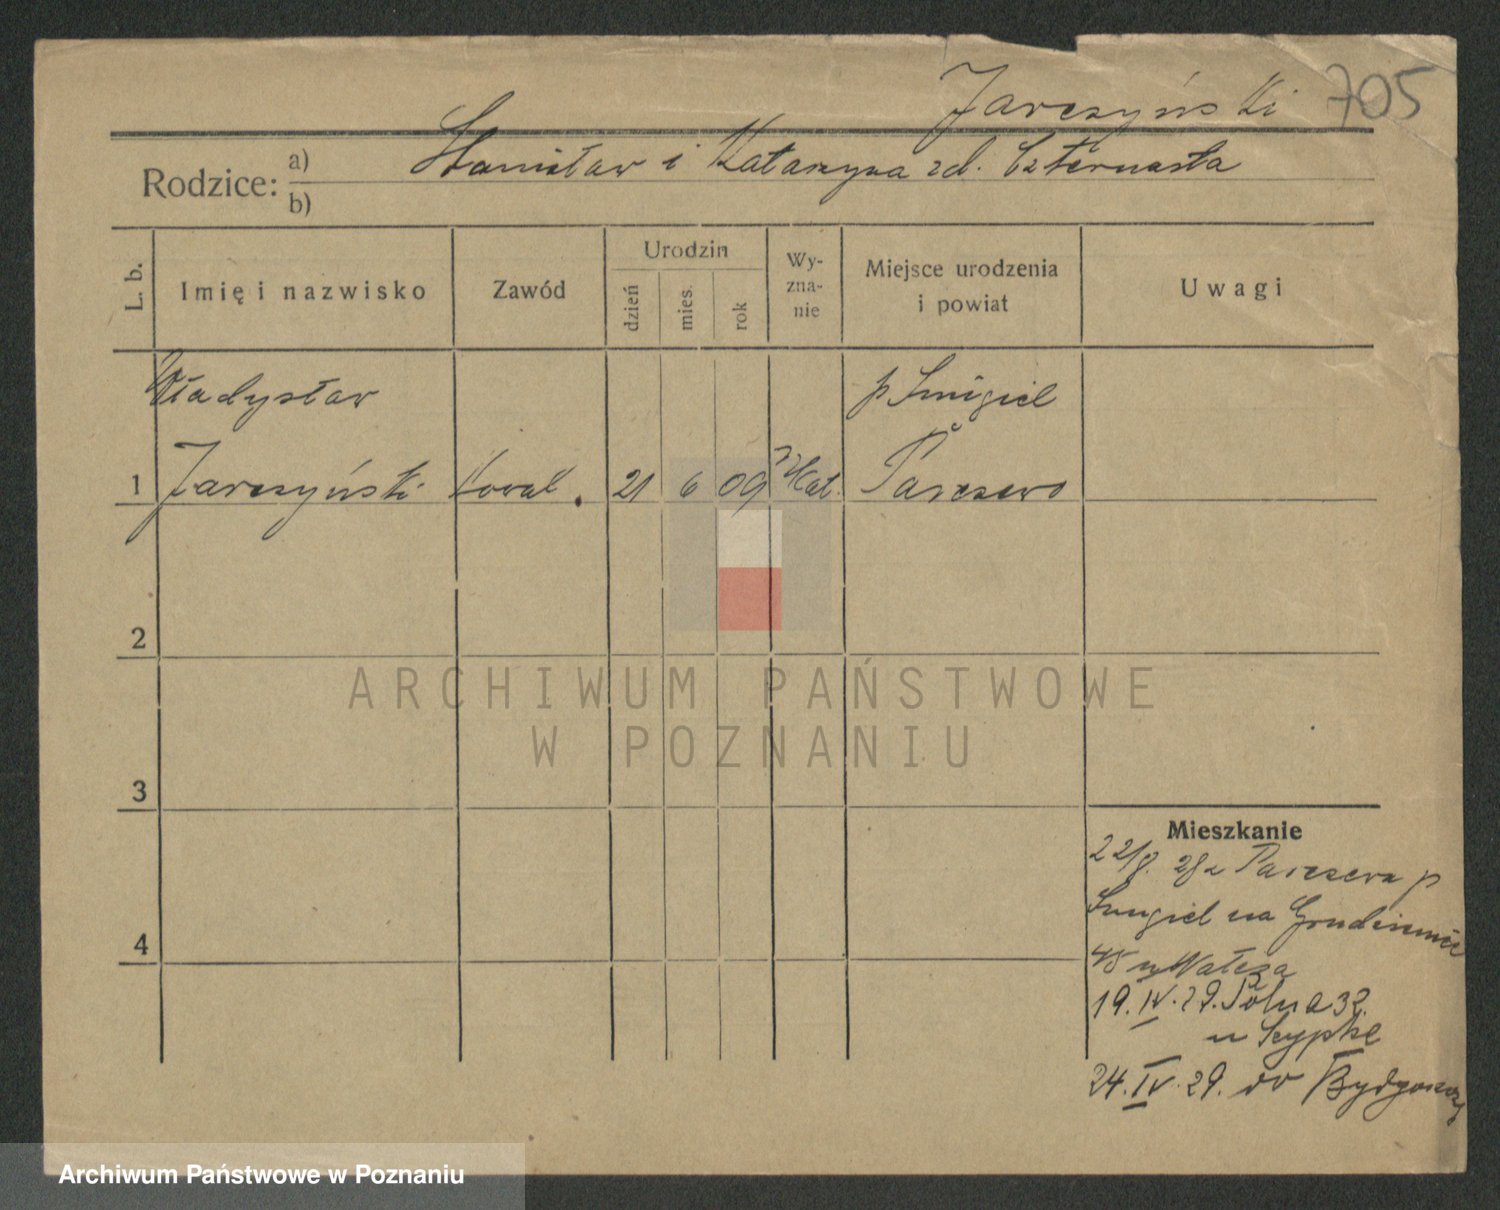 Jarczyński 705
Rodzice: a) Stanisław i Katarzyna zd. Czternasta
b)
L. b. Imię i nazwisko Zawód Urodzin dzień mies. rok Wy-zna-nie Miejsce urodzenia i powiat Uwagi
Władysław p Śmigiel
1 Jarczyński Kowal. 21 6 09 Kat. Parczewo
2
ARCHIWUM PAŃSTWOWE
W POZNANIU
3
Mieszkanie
22/8. 28 z Parczewa p
Śmigiel na Grudzieniec
4
45 u Wałcza
19.IV.29. Polna 32.
u Szypke
24.IV.29. do Bydgoszczy
Archiwum Państwowe w Poznaniu